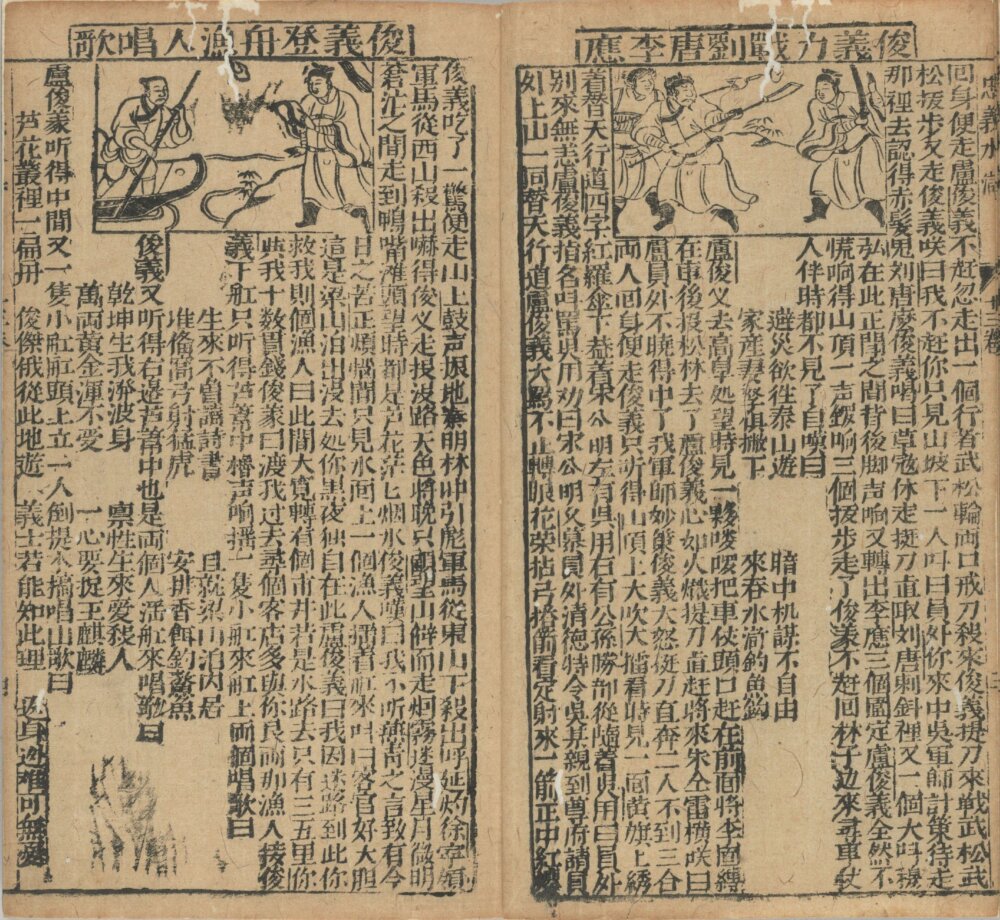 俊義力戰劉唐李應
回身便走盧俊義不赶忽走出一個行者武松輪両口戒刀殺來俊義提刀來戰武松武
松拔步又走俊義咲曰我不赶你只見山坡下一人叫曰員外你來中吳軍師計策待走
那裡去認得赤髮鬼刘唐麽俊義喝曰草寇休走挺刀直取刘唐刺斜裡又一個大叫穆
弘在此正鬥之間背後脚声响又轉出李應三個圍定盧俊義全然不
慌响得山頂一声鑼响三個拔步走了俊義不赶回林子边來尋車仗
人伴時都不見了自嘆曰
避災欲徃泰山遊 暗中机謀不自由
家産妻孥俱撇下 來吞水滸釣魚鈎
盧俊义去高阜処望時見一夥嘍嘍把車仗頭口赶在前面將李固縛
在車後投松林去了盧俊義心如火熾提刀直赶將來朱仝雷橫咲曰
盧員外不曉得中了我軍師妙策俊義大怒挺刀直奔二人不到三合
両人回身便走俊義只听得山頂上大吹大擂看時見一面黄旗上綉
着替天行道四字紅羅傘下盖着宋公明左有吳用右有公孫勝部從隨着吳用曰員外
別來無恙盧俊義指名叫罵吳用劝曰宋公明久慕員外清德特令吳某親到尊府請員
外上山一同替天行道盧俊義大罵不止轉眼花荣拈弓搭箭看定射來一箭正中紅纓
俊義登舟漁人唱歌
俊義吃了一驚便走山上鼓声振地秦明林冲引彪軍馬從東山下殺出呼延灼徐寧領
軍馬從西山殺出嚇得俊义走投没路天色將晚只望山僻而走烟霧迷漫星月微明
蒼茫之間走到鴨嘴灘頭望時都是芦花茫匕烟水俊義嘆曰我不听燕青之言致有今
日之苦正煩惱間只見水面上一個漁人搖着舡來叫曰客官好大胆
這是梁山泊出没去処你黒夜独自在此盧俊義曰我因迷路到此你
救我則個漁人曰此間大寬轉有個市井若是水路去只有三五里你
與我十数貫錢俊义曰渡我过去尋個客店多與你艮両那漁人接俊
義下舡只听得芦葦中櫓声响搖一隻小舡來舡上両個唱歌曰
生來不曾讀詩書 且就梁山泊内居
准偹窩弓射猛虎 安排香餌釣鰲魚
俊義又听得右邉芦葦中也是両個人搖舡來唱歌曰
乾坤生我溌波身 禀性生來愛殺人
萬両黄金渾不愛 一心要捉玉麒麟
盧俊义听得中間又一隻小舡舡頭上立一人倒提木槁唱山歌曰
芦花叢裡一扁舟 俊傑俄從此地遊 義士若能知此理 返身逃難可無憂